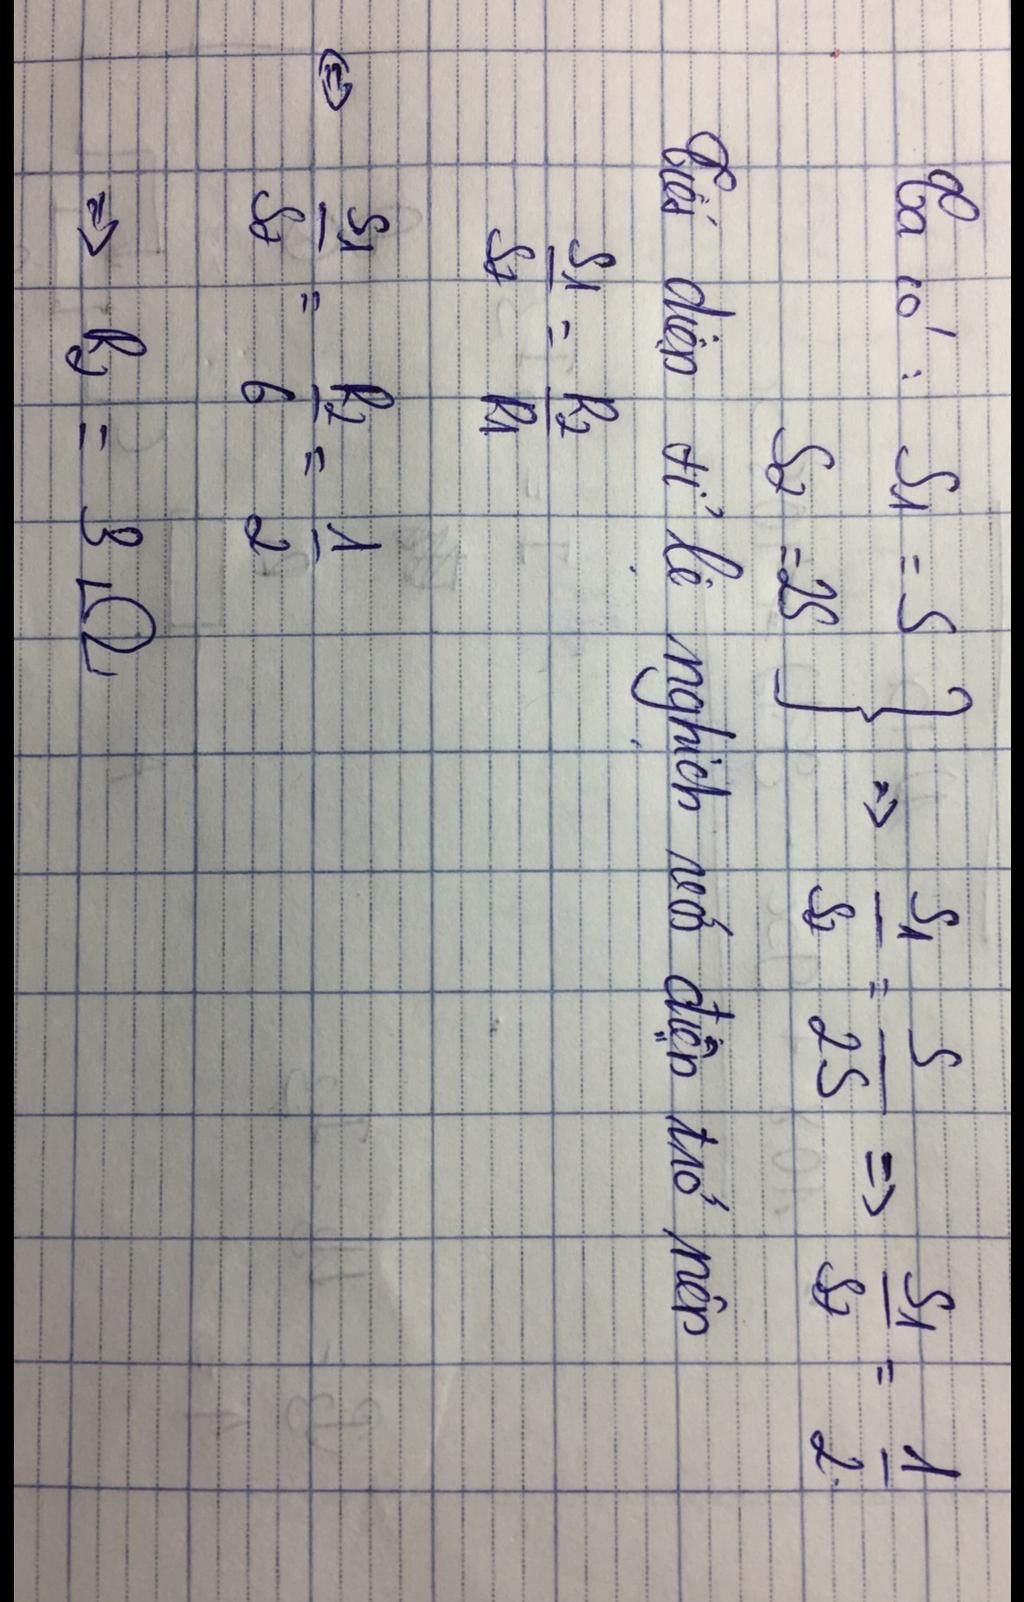 Ta có : S1 = S } => S1/S2 = S/2S => S1/S2 = 1/2
S2 = 2S
Tiết diện tỉ lệ nghịch với điện trở nên
S1/S2 = R2/R1
<=> S1/S2 = R2/6 = 1/2
=> R2 = 3 Ω